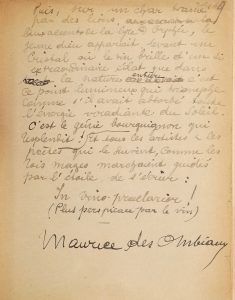 Puis, sur un char traîné
par des lions,
aux accents de la lyre d'Orphée, le
jeune dieu apparaît levant une
cristal où le vin brille d'un si
extraordinaire éclat que dans
la nature entière c'est
ce point lumineux qui triomphe
comme s'il avait absorbé toute
l'énergie vivifiante du soleil.
C'est le génie bourguignon qui
resplendit ! Et tous les artistes et les
poètes qui le suivent, comme les
rois mages marchaient guidés
par l'étoile, de s'écrier :
In vino praeclarior !
(Plus perspicace par le vin)
Maurice des Ombiaux